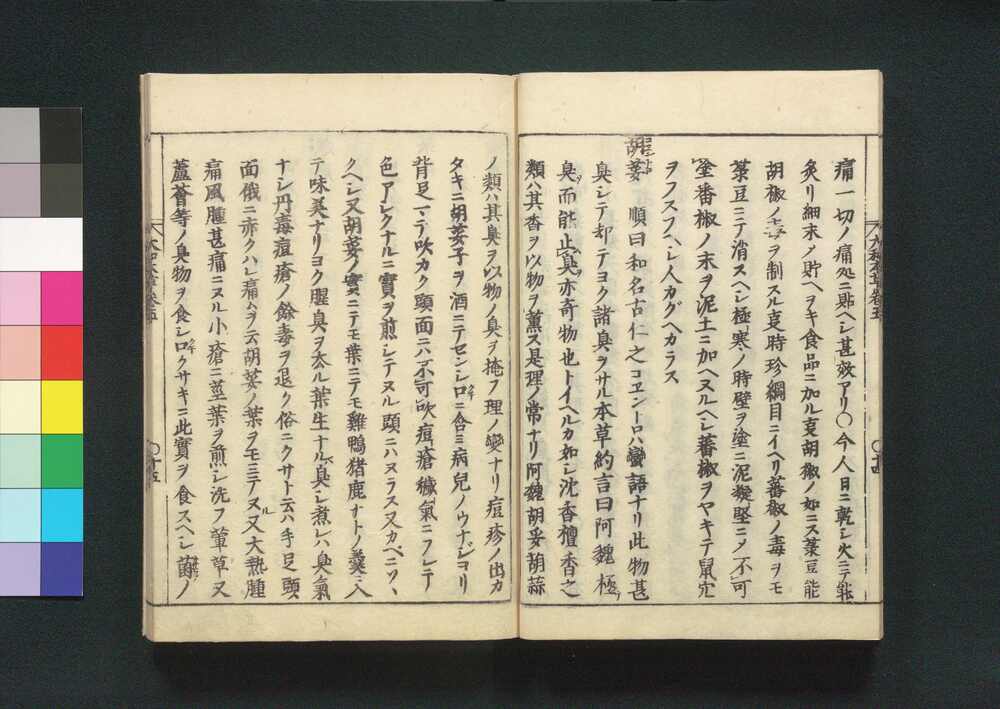 痛一切ノ痛処ニ貼ヘシ甚效アリ〇今人日ニ乾シ火ニテ
炙リ細末ノ貯ヘヲキ食品ニ加ル叓胡椒ノ如ニス菉豆能
胡椒ノ毒ヲ制スル叓時珍綱目ニイヘリ蕃椒ノ毒ヲモ
菉豆ニテ消スヘシ極寒ノ時壁ヲ塗ニ泥凝堅ニノ不可
塗番椒ノ末ヲ泥土ニ加ヘヌルヘシ蕃椒ヲヤキテ鼠穴
ヲフスフヘシ人カグヘカラス
胡荽 順曰和名古仁之コヱンーロハ蠻語ナリ此物甚
臭シテ却テヨク諸臭ヲサル本草約言曰阿魏極
臭而能止臭亦奇物也トイヘルカ如シ沈香檀香之
類ハ其香ヲ以物ヲ薫ス是理ノ常ナリ阿魏胡荽葫蒜
ノ類ハ其臭ヲ以物ノ臭ヲ掩フ理ノ變ナリ痘疹ノ出カ
タキニ胡荽子ヲ酒ニテセンシ口ニ含ミ病兒ノウナジヨリ
背足マテ吹カク頭面ニハ不可吹痘瘡穢氣ニフレテ
色アシクナルニ實ヲ煎シテヌル頭ニハヌラス又カベニソヽ
クヘシ又胡荽ノ實ニテモ葉ニテモ雞鴨猪鹿ナトノ羹ニ入
テ味美ナリヨク腥臭ヲ去ル葉生ナルハ臭シ煮レハ臭氣
ナシ丹毒痘瘡ノ餘毒ヲ退ク俗ニクサト云ハ手足頭
面俄ニ赤クハレ痛ムヲ云胡荽ノ葉ヲモミテヌル又大熱腫
痛風腫甚痛ニヌル小瘡ニ莖葉ヲ煎シ洗フ葷草又
蘆薈等ノ臭物ヲ食シ口クサキニ此實ヲ食スヘシ菌ノ
大和本草卷五
〇十四
大和本草卷五
〇十五